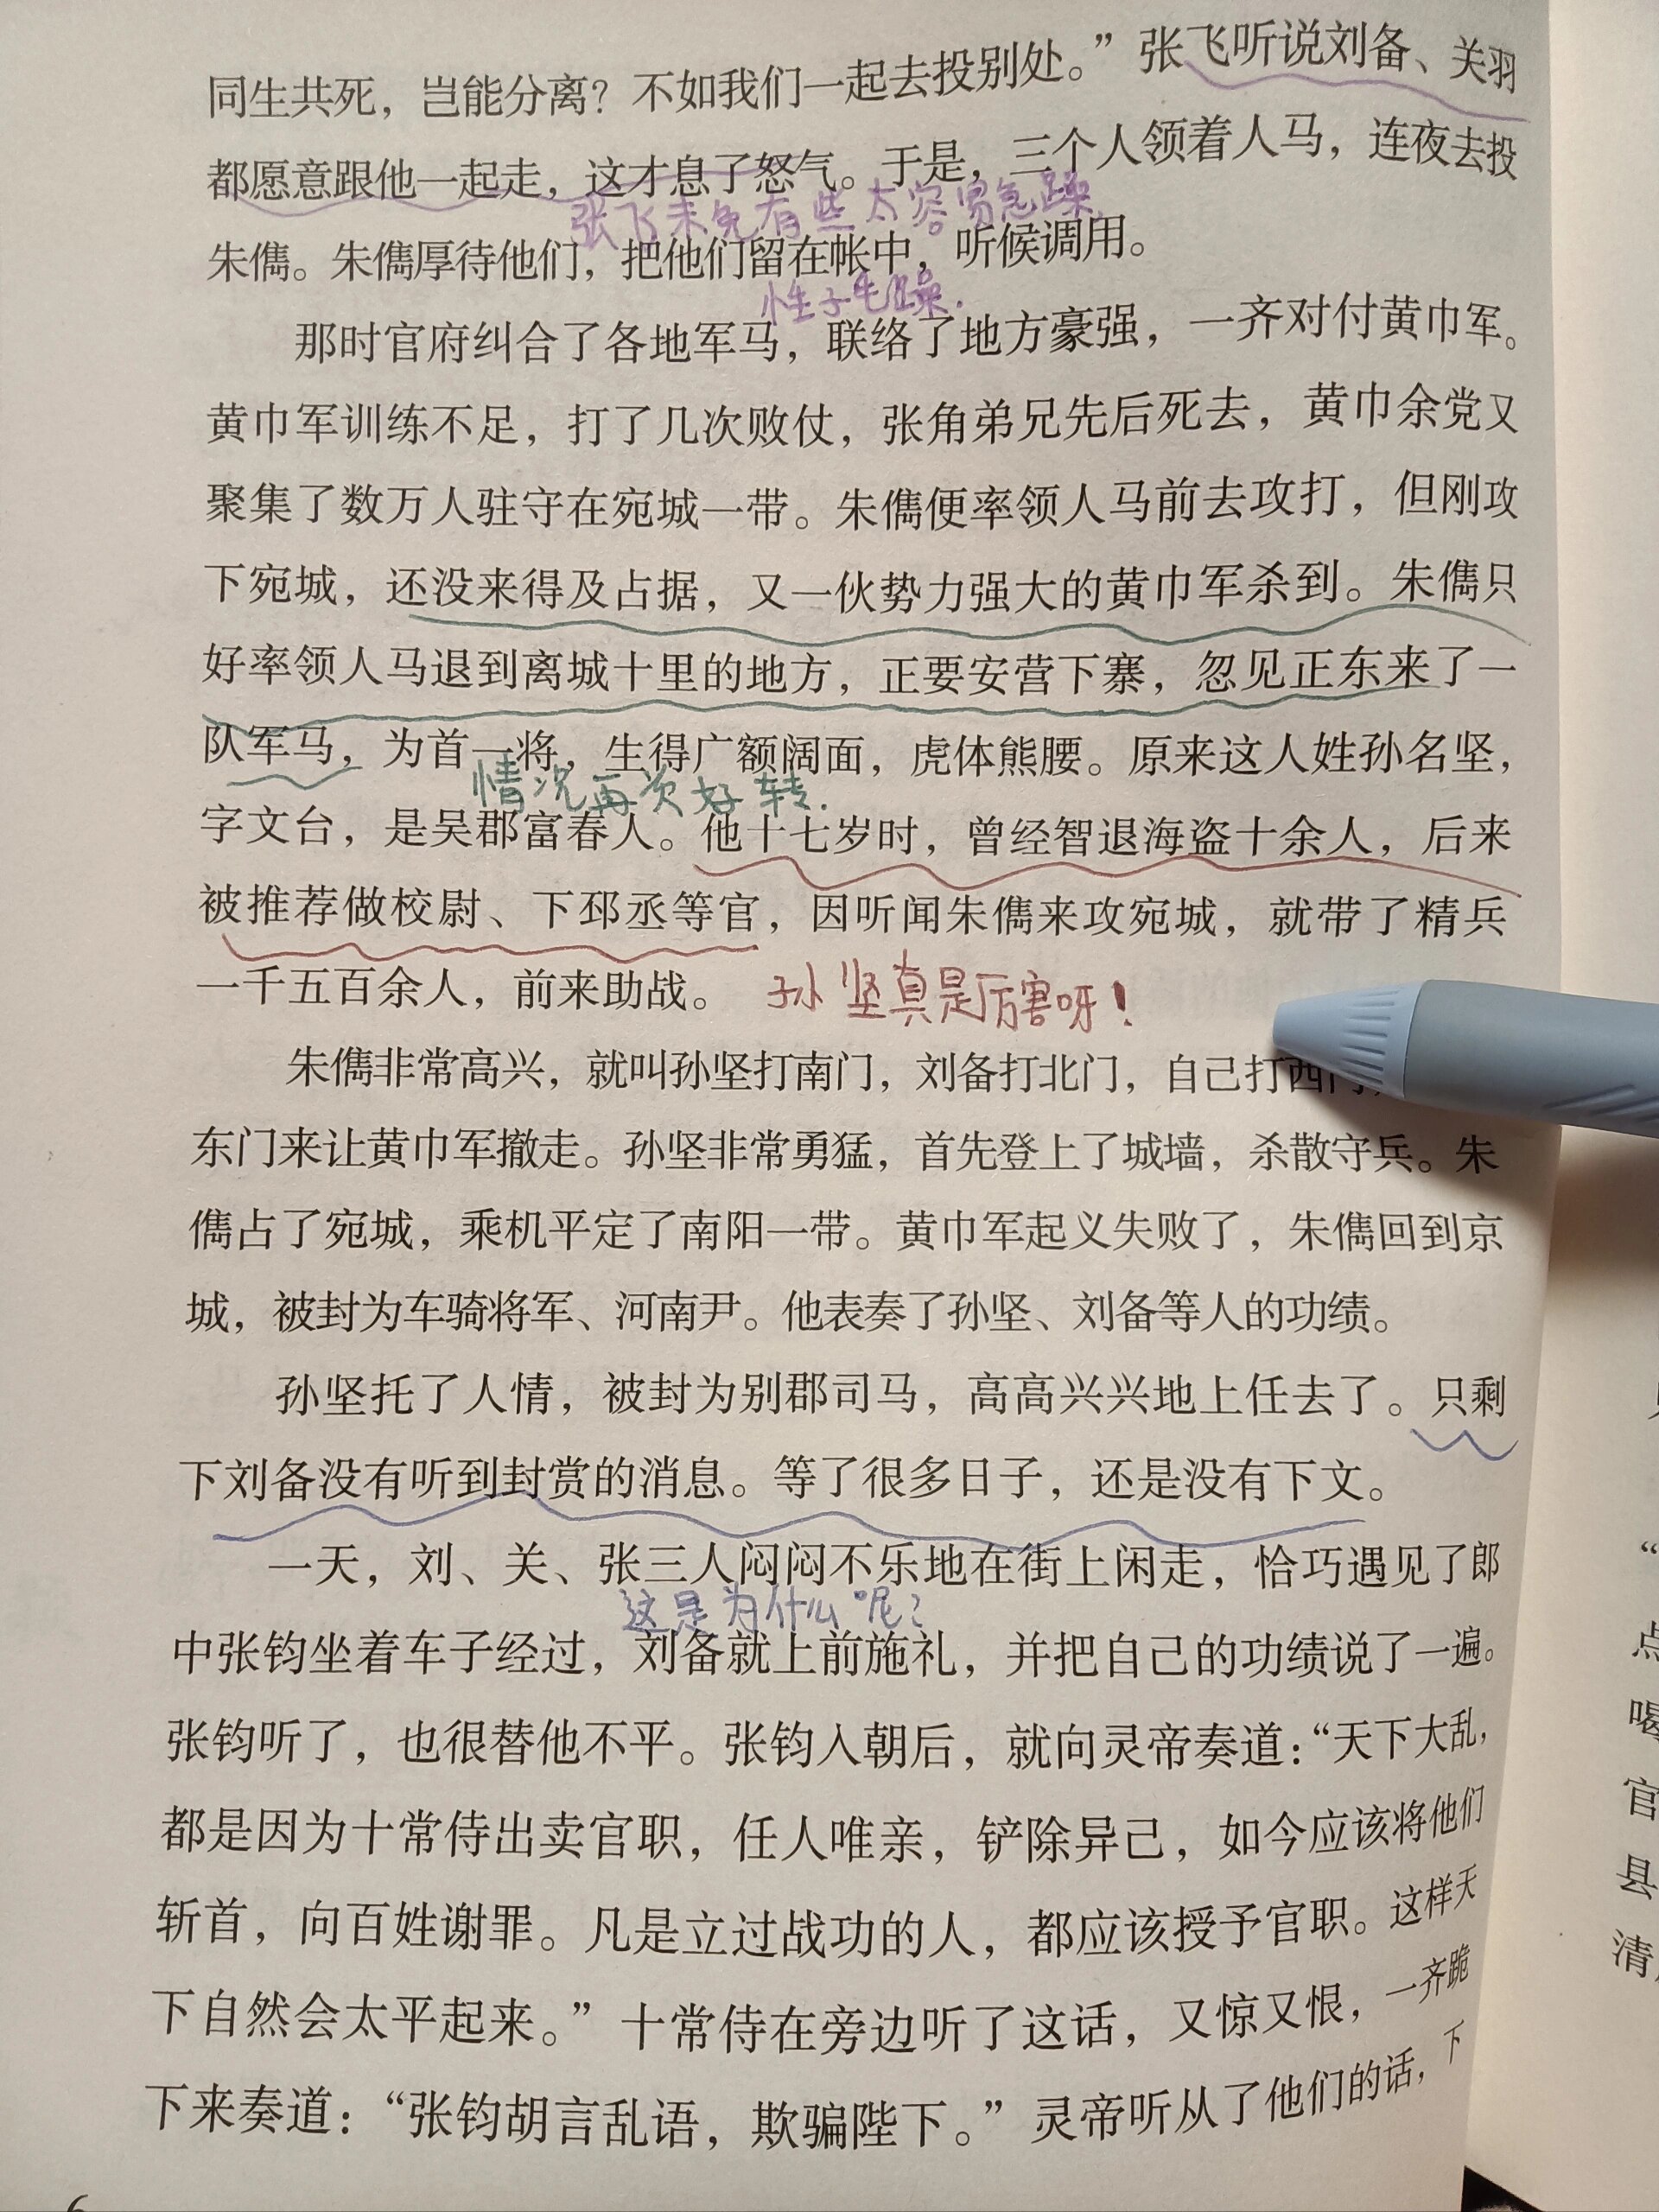 同生共死，岂能分离？不如我们一起去投别处。”张飞听说刘备、关羽
都愿意跟他一起走，这才息了怒气。于是，三个人领着人马，连夜去投
张飞未免有些太容易急躁，
朱儁。朱儁厚待他们，把他们留在帐中，听候调用。
性子毛躁.
那时官府纠合了各地军马，联络了地方豪强，一齐对付黄巾军。
黄巾军训练不足，打了几次败仗，张角弟兄先后死去，黄巾余党又
聚集了数万人驻守在宛城一带。朱儁便率领人马前去攻打，但刚攻
下宛城，还没来得及占据，又一伙势力强大的黄巾军杀到。朱儁只
好率领人马退到离城十里的地方，正要安营下寨，忽见正东来了一
队军马，为首一将，生得广额阔面，虎体熊腰。原来这人姓孙名坚，
情况再次好转.
字文台，是吴郡富春人。他十七岁时，曾经智退海盗十余人，后来
被推荐做校尉、下邳丞等官，因听闻朱儁来攻宛城，就带了精兵
一千五百余人，前来助战。 孙坚真是厉害呀！
朱儁非常高兴，就叫孙坚打南门，刘备打北门，自己打西门，
东门来让黄巾军撤走。孙坚非常勇猛，首先登上了城墙，杀散守兵。朱
儁占了宛城，乘机平定了南阳一带。黄巾军起义失败了，朱儁回到京
城，被封为车骑将军、河南尹。他表奏了孙坚、刘备等人的功绩。
孙坚托了人情，被封为别郡司马，高高兴兴地上任去了。只剩
下刘备没有听到封赏的消息。等了很多日子，还是没有下文。
一天，刘、关、张三人闷闷不乐地在街上闲走，恰巧遇见了郎
这是为什么呢？
中张钧坐着车子经过，刘备就上前施礼，并把自己的功绩说了一遍。
张钧听了，也很替他不平。张钧入朝后，就向灵帝奏道：“天下大乱，
都是因为十常侍出卖官职，任人唯亲，铲除异己，如今应该将他们
斩首，向百姓谢罪。凡是立过战功的人，都应该授予官职。这样天
下自然会太平起来。”十常侍在旁边听了这话，又惊又恨，一齐跪
下来奏道：“张钧胡言乱语，欺骗陛下。”灵帝听从了他们的话，下
“
点
喝
官
县
清